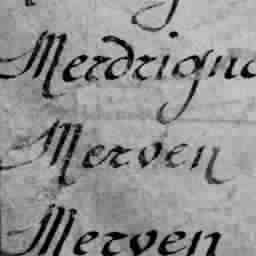 Merdrigna
Merven
Merven